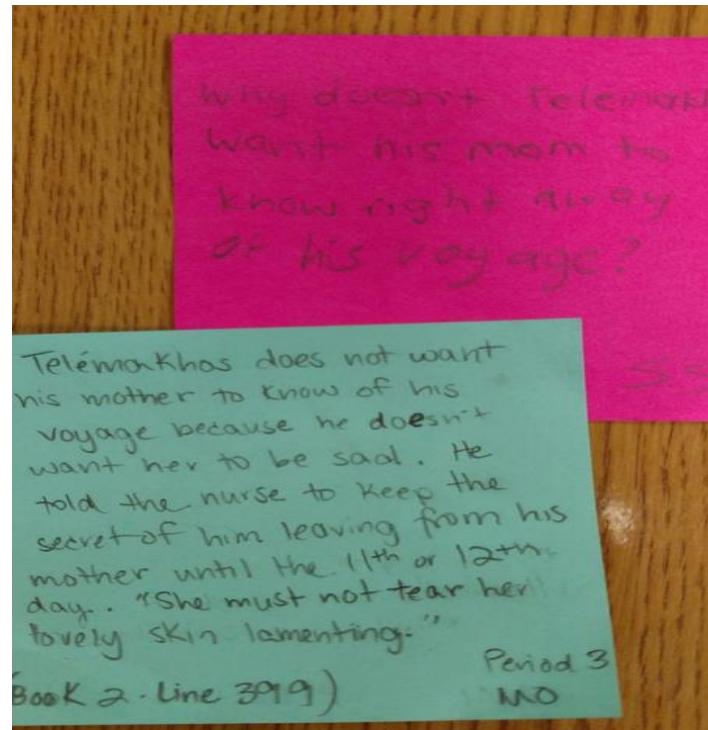 Why doesn't Telemakh
want his mom to
know right away
of his voyage?
SS
Telémakhos does not want
his mother to know of his
voyage because he doesn't
want her to be sad. He
told the nurse to keep the
secret of him leaving from his
mother until the 11th or 12th
day.. "She must not tear her
lovely skin lamenting."
Period 3
Book 2. Line 399)
MO